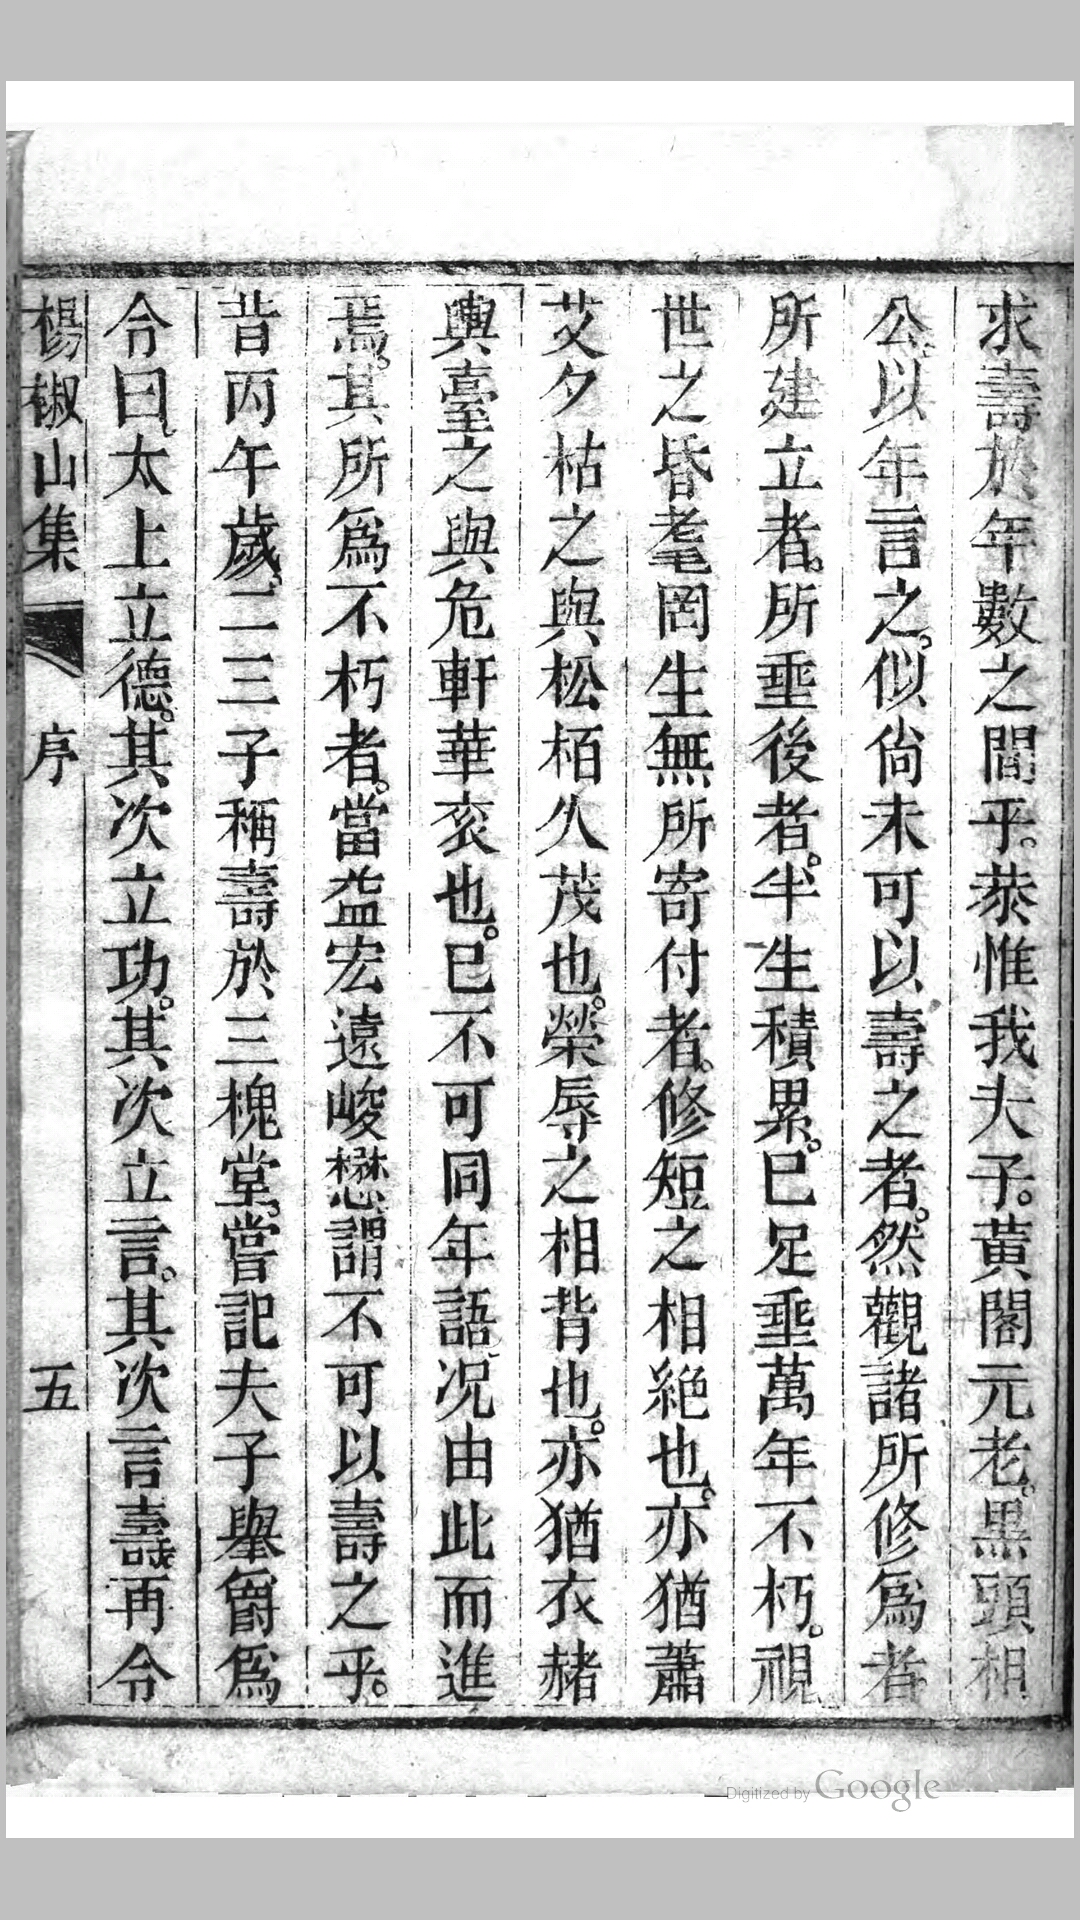 求壽於年數之間乎。恭惟我夫子。黃閣元老。黒頭相
公。以年言之。似尚未可以壽之者。然觀諸所修爲者
所建立者。所垂後者。半生積累。已足垂萬年不朽。視
世之昏耄罔生無所寄付者。修短之相絶也。亦猶蕭
艾夕枯之與松栢久茂也。榮辱之相背也。亦猶衣赭
輿臺之與危軒華衮也。已不可同年語。况由此而進
焉。其所爲不朽者。當益宏遠峻懋。謂不可以壽之乎。
昔丙午歲。二三子稱壽於三槐堂。嘗記夫子舉爵爲
令曰。太上立德。其次立功。其次立言。其次言壽。再令
楊椒山集 序 五
Digitized by Google